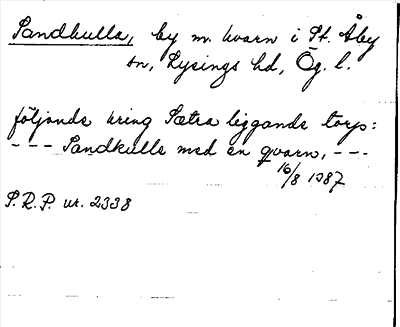 Sandkulla, by m. kvarn i St. Åby
sn, Lysings hd, Ög. l.
följande kring Sætra liggande torp:
--- Sandkulle med en qvarn, ---
16/8 1387
S.R.P. nr. 2338